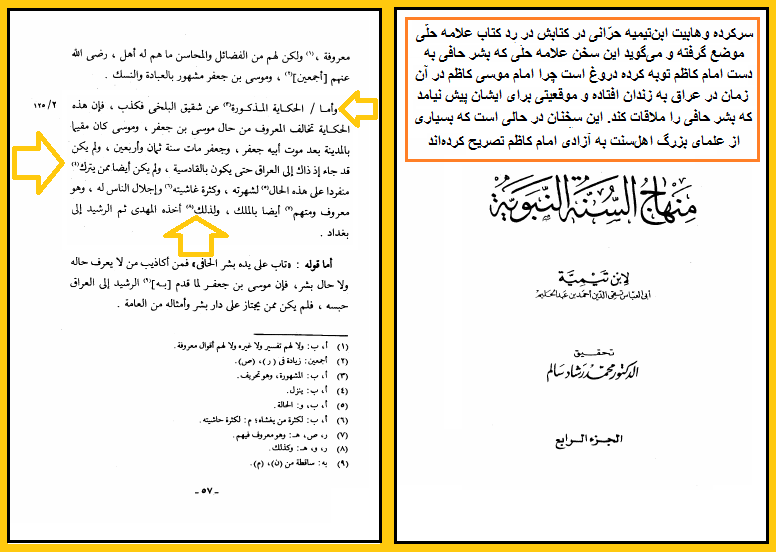 سرکرده وهابیت ابن‌تیمیه حرّانی در کتابش در رد کتاب علامه حلّی
موضع گرفته و می‌گوید این سخن علامه حلّی که بشر حافی به
دست امام کاظم توبه کرده دروغ است چرا امام موسی کاظم در آن
زمان در عراق به زندان افتاده و موقعیتی برای ایشان پیش نیامد
که بشر حافی را ملاقات کند. این سخنان در حالی است که بسیاری
از علمای بزرگ اهل‌سنت به آزادی امام کاظم تصریح کرده‌اند
منهاج السنة النبوية
لابن تيمية
أبي العباس تقي الدين أحمد بن عبد الحليم
تحقيق
الدكتور محمد رشاد سالم
الجزء الرابع
معروفة ،(١) ولكن لهم من الفضائل والمحاسن ما هم له أهل ، رضى الله
عنهم [أجمعين](٢) ، وموسى بن جعفر مشهور بالعبادة والنسك .
وأما / الحكاية المذكورة(٣) عن شقيق البلخى فكذب ، فإن هذه
١٢٥/٢
الحكاية تخالف المعروف من حال موسى بن جعفر ، وموسى كان مقيما
بالمدينة بعد موت أبيه جعفر ، وجعفر مات سنة ثمان وأربعين ، ولم يكن
قد جاء إذ ذاك إلى العراق حتى يكون بالقادسية ، ولم يكن أيضا ممن يترك(٤)
منفردا على هذه الحال(٥) لشهرته ، وكثرة غاشيته(٦) وإجلال الناس له ، وهو
معروف ومتهم(٧) أيضا بالملك ، ولذلك(٨) أخذه المهدى ثم الرشيد إلى
بغداد .
أما قوله : «تاب على يده بشر الحافى» فمن أكاذيب من لا يعرف حاله
ولا حال بشر، فإن موسى بن جعفر لما قدم [به](٩) الرشيد إلى العراق
حبسه ، فلم يكن ممن يجتاز على دار بشر وأمثاله من العامة .
(١) أ، ب: ولا لهم تفسير ولا غيره ولا لهم أقوال معروفة.
(٢) أجمعين: زيادة فى (ر)، (ص).
(٣) أ، ب: المشهورة، وهو تحريف.
(٤) أ، ب: ينزل.
(٥) أ، ب، و: الحالة.
(٦) أ، ب: لكثرة من يغشاه؛ م: لكثرة حاشيته.
(٧) ر، ص، هـ: وهو معروف فيهم.
(٨) ر، و، هـ: وكذلك.
(٩) به: ساقطة من (ن)، (م).
ـ ٥٧ ـ